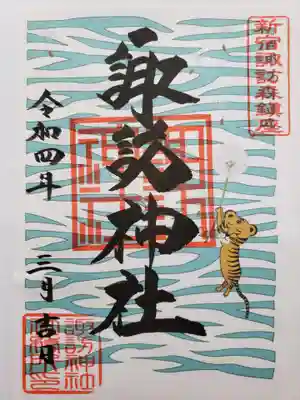 新宿諏訪森鎮座
諏訪神社
令和四年
三月吉日
諏訪神社